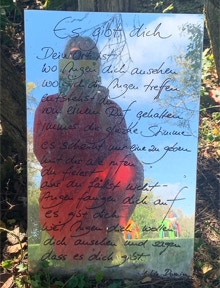 Es gibt dich
Dein Ort ist
wo Augen dich ansehen
wo sich die Augen treffen
entstehst du
von einem Ruf gehalten
immer die gleiche Stimme
es scheint nur eine zu geben
mit der alle rufen
du fielest
aber du fällst nicht
Augen fangen dich auf
es gibt dich
weil Augen dich wollen
dich ansehen und sagen
dass es dich gibt